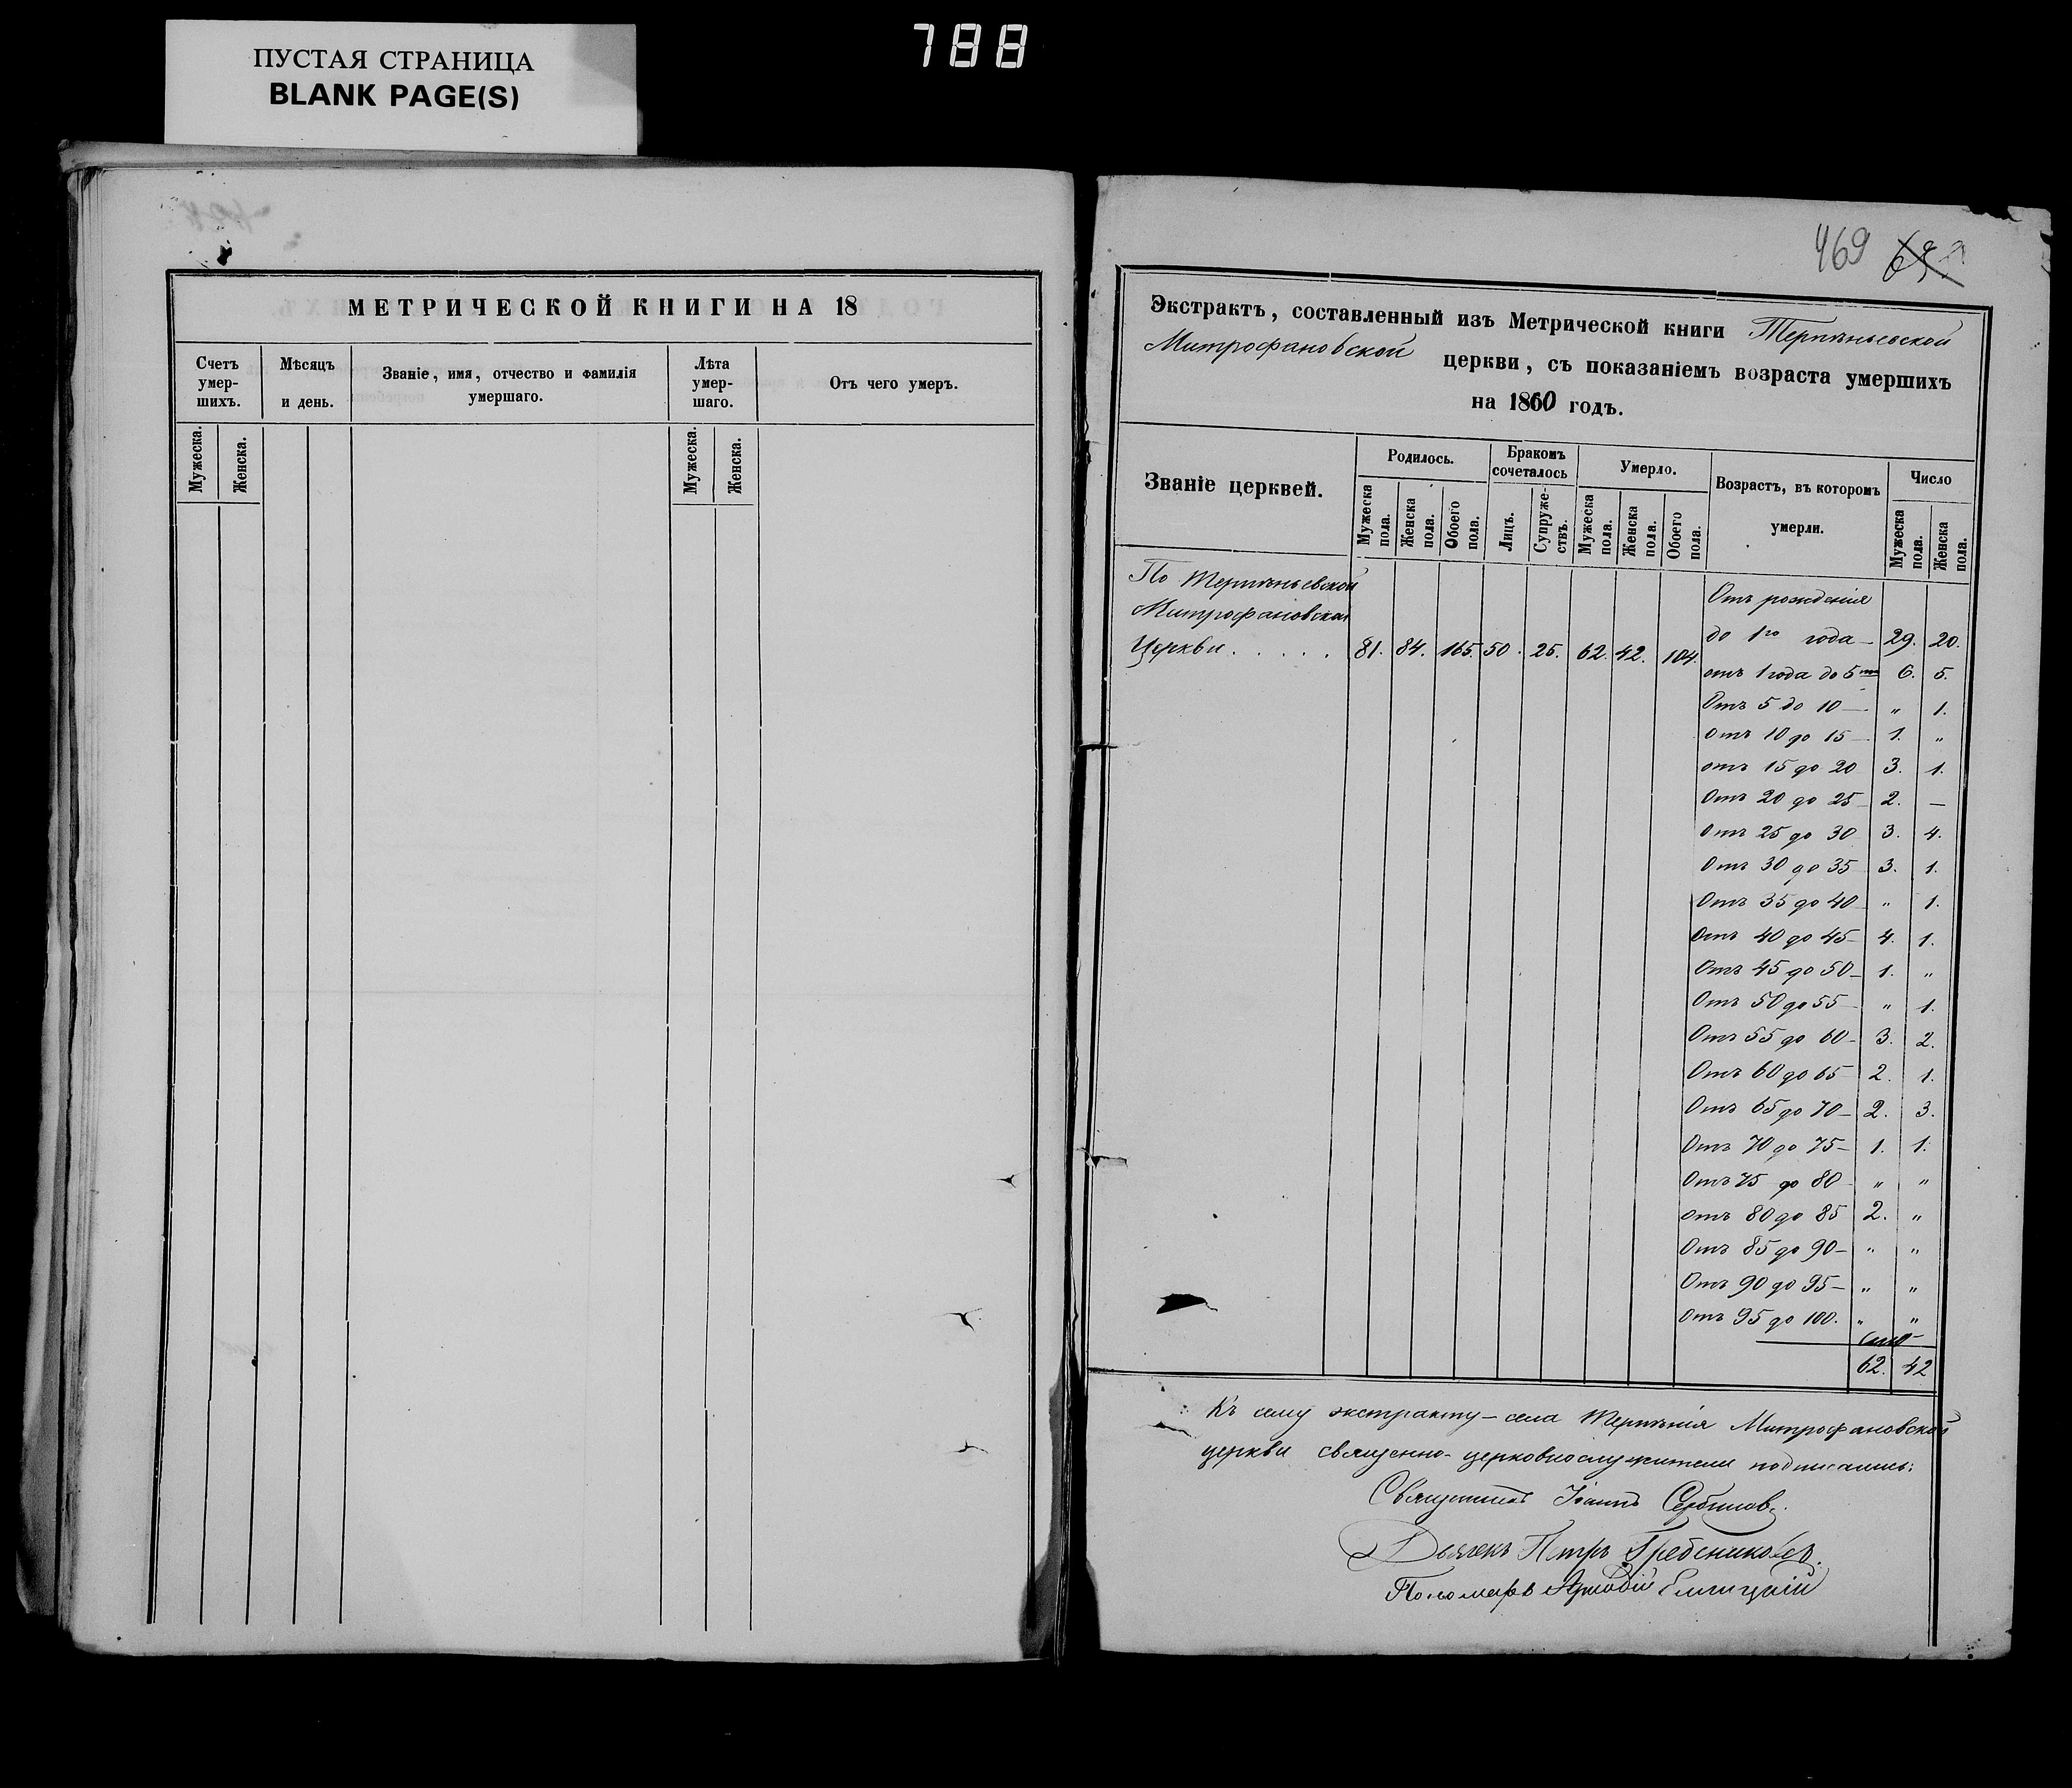 ПУСТАЯ СТРАНИЦА
BLANK PAGE(S)
788
МЕТРИЧЕСКОЙ КНИГИ НА 18
Счетъ умер- шихъ.
Мѣсяцъ и день.
Званіе, имя, отчество и фамилія умершаго.
Лѣта умер- шаго.
Отъ чего умеръ.
Мужеска.
Женска.
Мужеска.
Женска.
469
Экстрактъ, составленный изъ Метрической книги Терпѣньевской
Митрофановской церкви, съ показаніемъ возраста умершихъ
на 1860 годъ.
Званіе церквей.
Родилось.
Бракомъ сочеталось
Умерло.
Возрастъ, въ которомъ умерли.
Число
Мужеска пола.
Женска пола.
Обоего пола.
Лицъ.
Супруже- ствъ.
Мужеска пола.
Женска пола.
Обоего пола.
Мужеска пола.
Женска пола.
По Терпѣньевской
Митрофановской
Церкви . . . . . 81. 84. 165. 50. 25. 62. 42. 104.
Отъ рожденія
до 1го года — 29. 20.
отъ 1 года до 5ти 6. 5.
Отъ 5 до 10 — „ 1.
отъ 10 до 15 — 1. „
отъ 15 до 20 3. 1.
Отъ 20 до 25 — 2. —
Отъ 25 до 30 3. 4.
Отъ 30 до 35 3. 1.
Отъ 35 до 40 „ 1.
Отъ 40 до 45 — 4. 1.
Отъ 45 до 50 — 1. „
Отъ 50 до 55 — „ 1.
Отъ 55 до 60 — 3. 2.
Отъ 60 до 65 — 2. 1.
Отъ 65 до 70 — 2. 3.
Отъ 70 до 75 — 1. 1.
Отъ 75 до 80 — „ „
отъ 80 до 85 2. „
Отъ 85 до 90 — „ „
Отъ 90 до 95 — „ „
Отъ 95 до 100. „ „
62. 42
Къ сему экстракту — села Терпѣнія Митрофановской
церкви священно-церковнослужители подписались:
Священникъ Іоаннъ Сербиновъ.
Дьячекъ Петръ Гребениковъ.
Пономарь